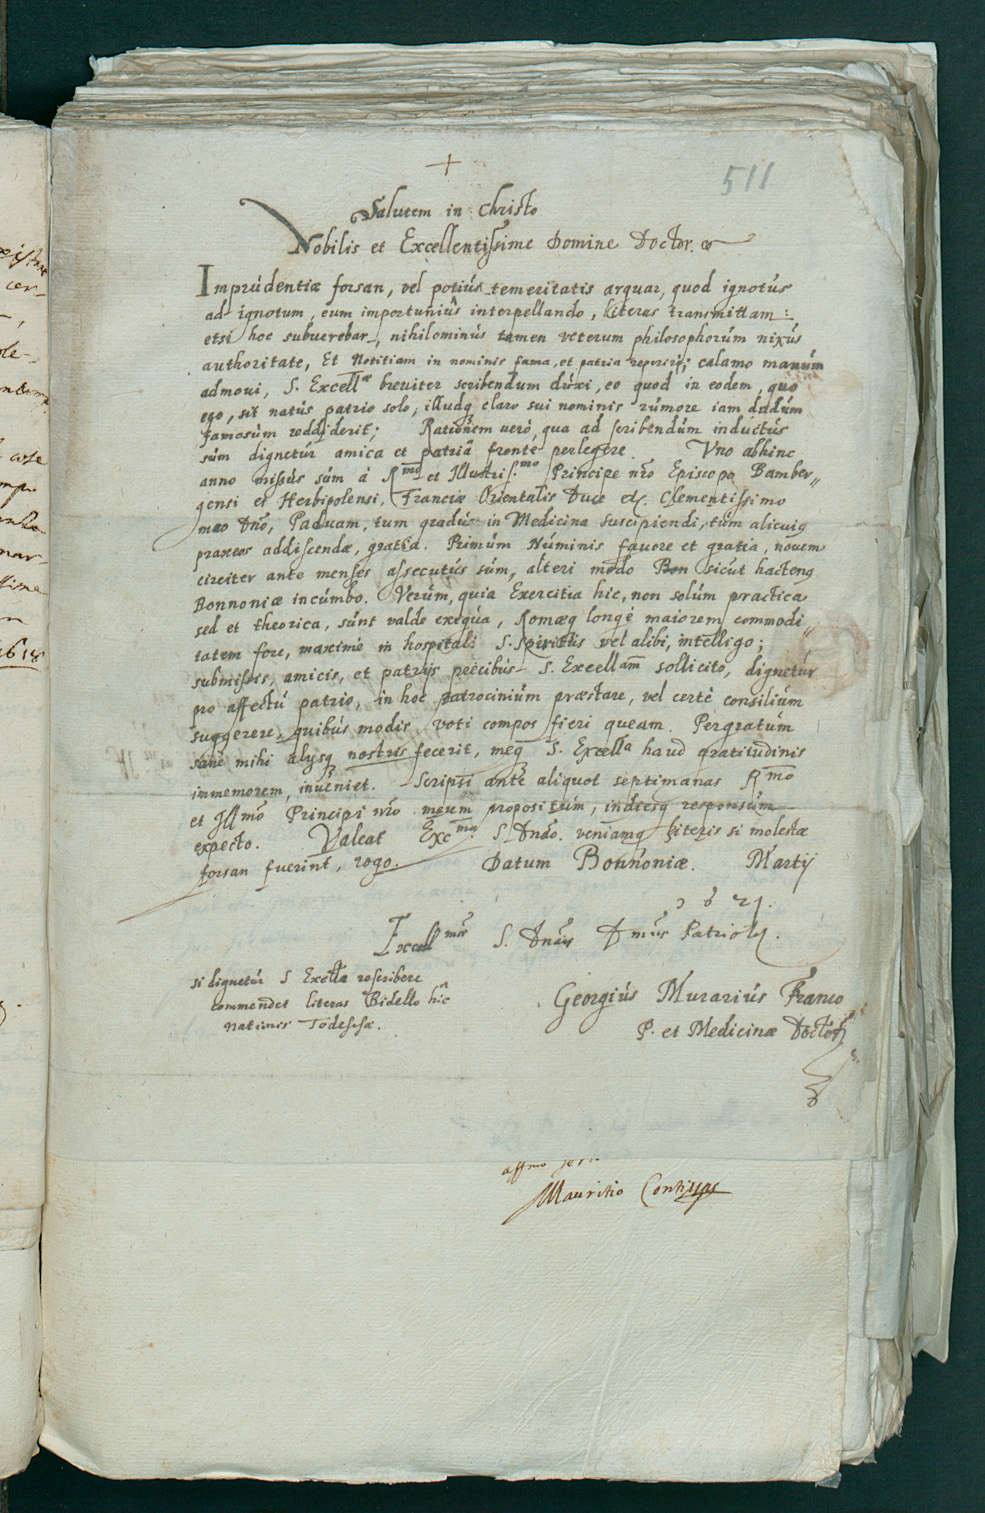 +
511
Salutem in Christo
Nobilis et Excellentissime Domine Doctor.
Imprudentiæ forsan, vel potius temeritatis arguar, quod ignotus
ad ignotum, eum importunius interpellando, literas transmittam:
etsi hoc subuerebar, nihilominus tamen veterum philosophorum nixus
authoritate, Et Notitiam in nominis fama, et patria reperiri; calamo manum
admoui, S. Excellæ breuiter scribendum duxi, eo quod in eodem, quo
ego, sit natus patrio solo, illudq claro sui nominis rumore iam dudum
famosum reddiderit; Rationem uerò, qua ad scribendum inductus
sum dignetur amica et patriâ fronte perlegere. Vno abhinc
anno missus sum à Rmo et Illustrissmo Principe nro Episcopo Bamber„
gensi et Herbipolensi, Franciæ Orientalis Duce Clementissimo
meo Dno, Paduam, tum gradus in Medicina suscipiendi, tum alicuiq
praxeos addiscendæ, gratia. Primum Numinis fauore et gratia, nouem
circiter ante menses assecutus sum, alteri modo Bon sicut hacteng
Bonnoniæ incumbo. Verùm, quia Exercitia hic, non solùm practica
sed et theorica, sunt valde exigua, Romæq longè maiorem commodi„
tatem fore, maximè in hospitali S. Spiritus vel alibi, intelligo;
submissis, amicis, et patrijs precibus S. Excellam sollicito, dignetur
pro affectu patrio, in hoc patrocinium præstare, vel certè consilium
suggerere, quibus modis, voti compos fieri queam. Pergratum
sanè mihi alijsq nostris fecerit, meq S. Excella haud gratitudinis
inmemorem, inueniet. Scripsi ante aliquot septimanas Rmo
et Illmo Principi nro meum propositum, indiesq responsum
expecto. Valeat Excma S. Dnao. veniamq literis si molestæ
forsan fuerint, rogo. Datum Bonnoniæ. Martij
1621.
Excellmæ S. Dnæ Dmus Patriot
si dignetur S Excella rescribere
commendet literas Bidello hic
Nationis Todescæ.
Georgius Murarius Franco
P. et Medicinæ Doctor
affmo
Mauritio
1618